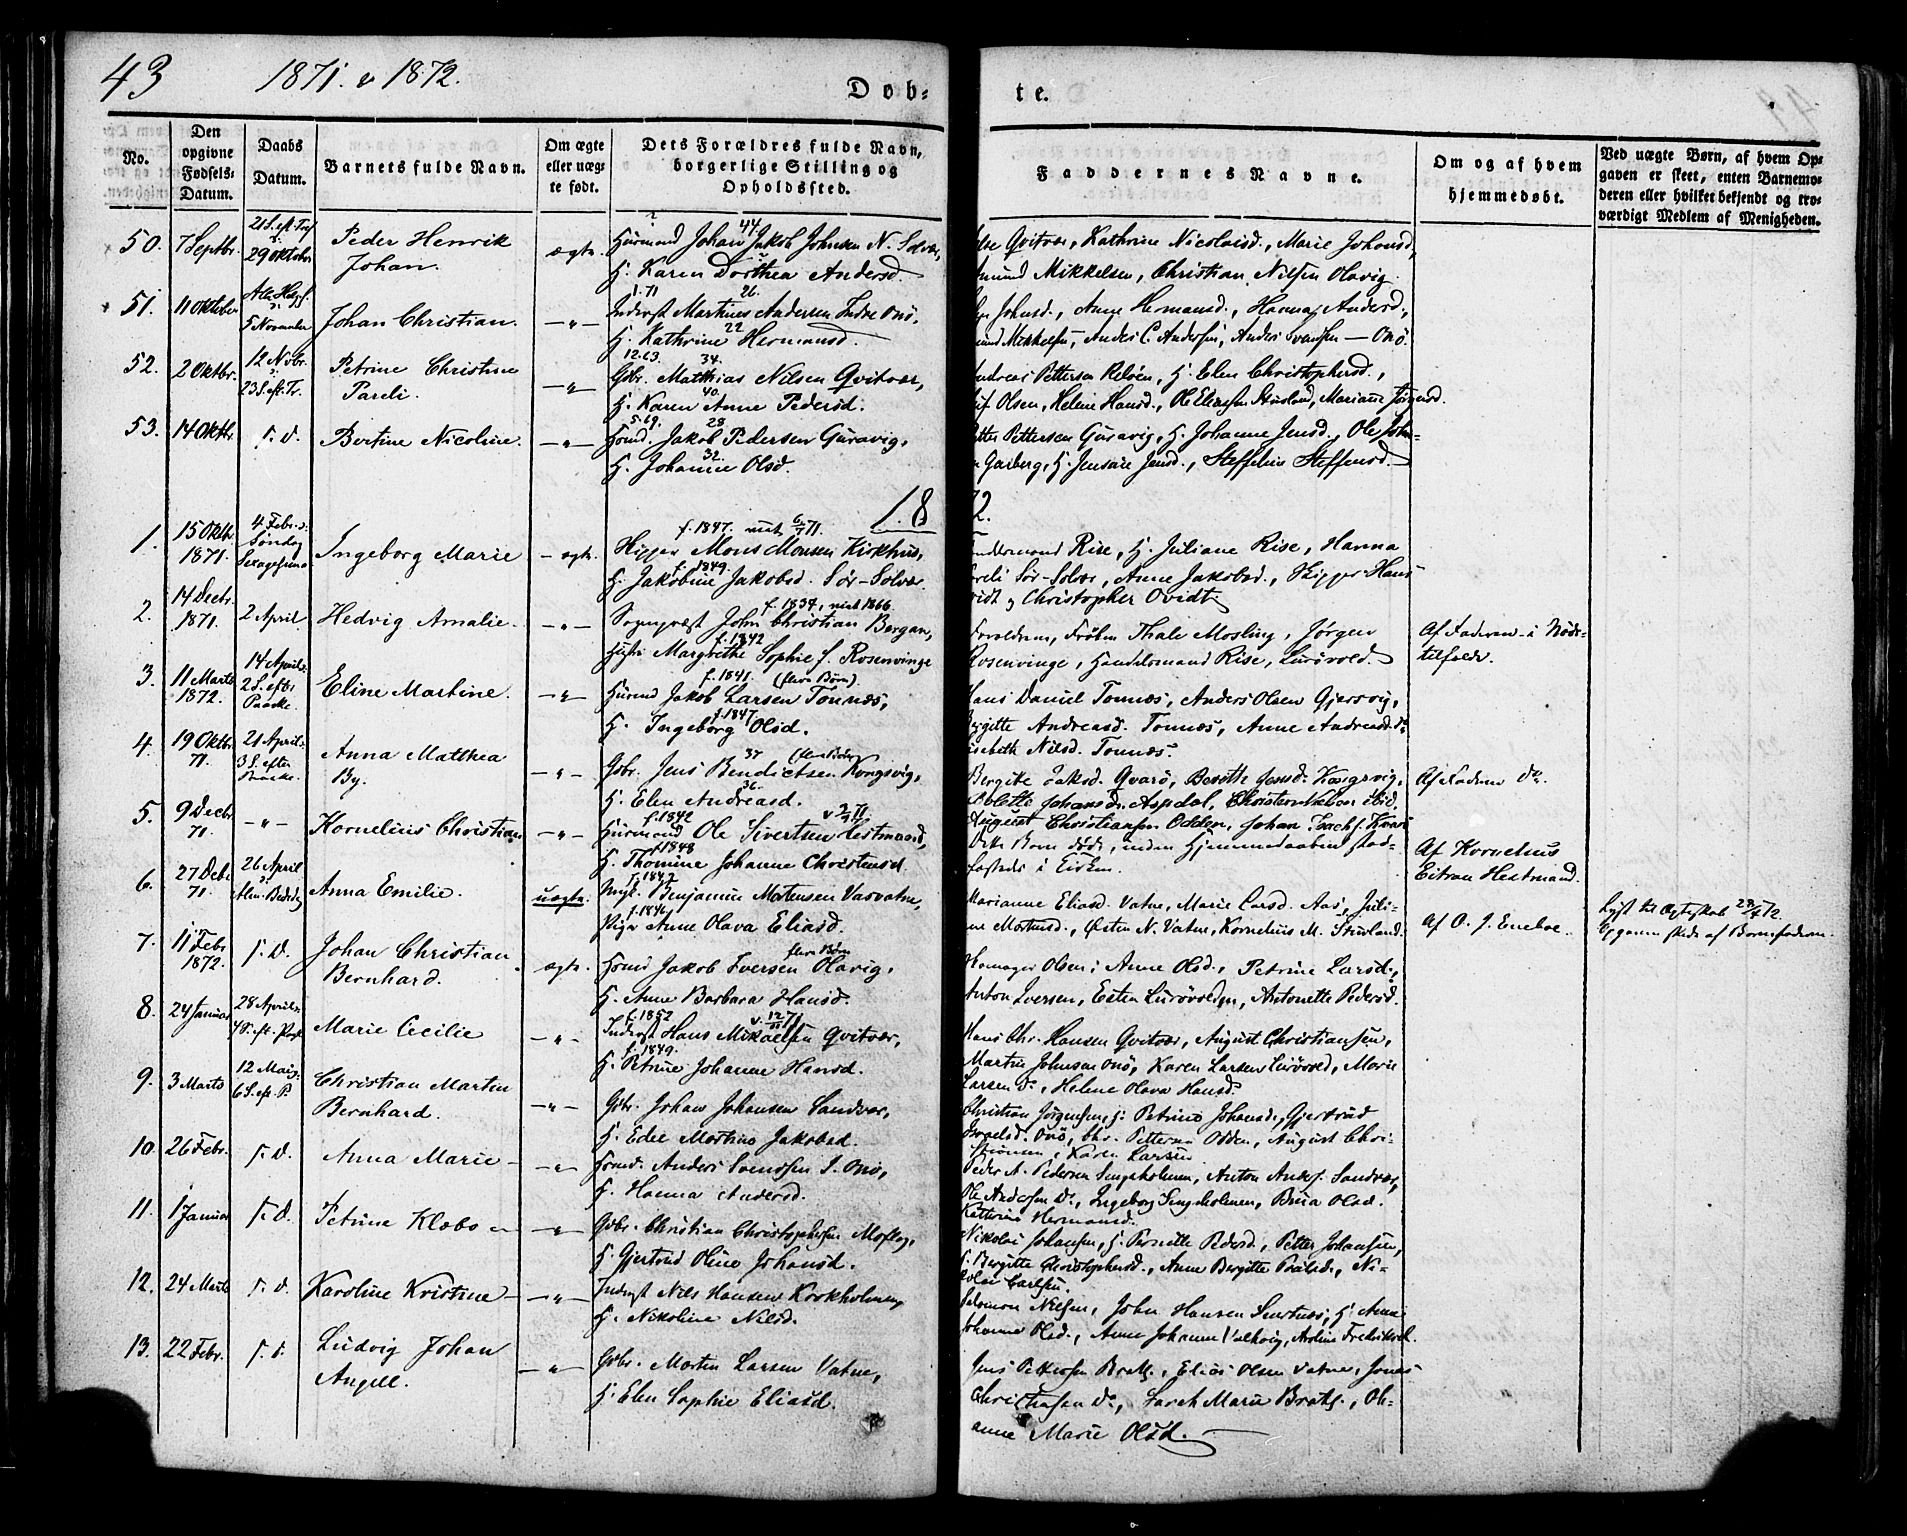 43 1871. & 1872. Døb- te.
No.
Den opgivne Fødsels-Datum.
Daabs Datum.
Barnets fulde Navn.
Om ægte eller uægte født.
Dets Forældres fulde Navn, borgerlige Stilling og Opholdsfted.
Faddernes Navne.
Om og af hvem hjemmedøbt.
Ved uægte Børn, af hvem Opgaven er skeet, enten Barnemoderen eller hvilket bekjendt og troværdigt Medlem af Menigheden.
50. 7 Septbr. 29 Oktober Peder Henrik Johan. ægte. Johan Jakob Johnsen N. Solvær, 44
H. Karen Dorthea Andersd.
Qvitvær, Kathrine Nicolaisd., Marie Johansd,
Mikkelsen, Christian Nilsen Olavig
51. 11 Oktober 5 November Johan Christian. —"— Inderst Martinus Andersen Indre Onø, 1.71 26.
H. Kathrine Hermansd. 22
Johnsd., Anne Hermansd., Hanna Andersd.,
Mikkelsen, Anders C. Andersen, Anders Svendsen — Onø.
52. 2 Oktbr. 12 Novbr. 23 S. eft. Tr. Petrine Christine Pareli. —"— Gbr. Matthias Nilsen Qvitvær, 12.63. 34.
H. Karen Anne Pedersd. 40.
Andreas Pettersen Reløen, H. Elen Christophersd.,
Olsen, Helene Hansd., Ole Eliassen Stuvland, Mariane Jørgensd.
53. 14 Oktbr. s. d. Bertine Nicoline. —"— Hsmd. Jakob Pedersen Guravig, 5.69. 28
H. Johanne Olsd. 32.
Petter Pettersen Guravig, H. Johanne Jensd., Ole John-
Gaiberg, H. Jensine Jensd., Steffeline Steffensd.
18 72.
1. 15 Oktbr. 1871. 4 Febr. Søndag Sexagesima Ingeborg Marie — ægte. f. 1847.
Skipper Mons Monsen Kirkhus,
f. 1849.
H. Jakobine Jakobsd. Sør-Solvær.
Handelsmand Rise, H. Juliane Rise, Hanna
Sør-Solvær, Anne Jakobsd., Skipper Hans
Christopher Ovidt
2. 14 Decbr. 1871. 2 April Hedvig Amalie. —"— f. 1837,
John Christian Bergan,
f. 1842
Hustru Margrethe Sophie f. Rosenvinge
Forældrene, Frøken Thale Mosling, Jørgen
Rosenvinge, Handelsmand Rise, Lurøvold.
Af Faderen i Nøds-
tilfælde.
3. 11 Marts 1872. 14 April 2 S. efter Paaske. Eline Martine. —"— f. 1841. (flere Børn).
Jakob Larsen Tonnæs,
f. 1847
H. Ingeborg Olsd.
Hans Daniel Tonnæs, Anders Olsen Gjersvig,
Birgitte Andreasd. Tonnæs, Anne Andreasd. do
Nilsd. Tonnæs.
4. 19 Oktbr. 71. 21 April 3 S. efter Paaske. Anna Matthea By. —"— 37
Gbr. Jens Bendictsen Kongsvig,
36.
H. Elen Andreasd.
Bergitte Jakobsd. Qvarø, Berette Jonsd. Kongsvig,
Johansd. Aspdal,
Af Faderen do.
5. 9 Decbr 71. —"— Kornelius Christian —"— f. 1842
Ole Sivertsen Hestmand,
f. 1848
H. Thomine Johanne Christensd.
August Christiansen Odden, Johan
Dette Barn døde, inden Hjemmedaaben stad-
fæstedes i Kirken.
Af Kornelius
Eitran Hestmand.
6. 27 Decbr. 71. 26 April Alm. Bededag Anna Emilie. uægte. f. 1842
Ungk. Benjamin Mortensen Vasvatne,
f. 1846
Pige Anne Olava Eliasd.
Marianne Eliasd. Vatne, Marie Larsd. Aas, Juli-
ne Mortensd., Østen N. Vatne, Kornelius M. Stuvland.
Af O. J. Eneboe.
Lyst til Ægteskab 28/4 72.
Opgaven skede af Barnefaderen.
7. 11 Febr 1872. s. d. Johan Christian Bernhard. ægte. flere Børn
Hsmd Jakob Iversen Olavig,
H. Anne Barbara Hansd.
Olsen, Anne Olsd., Petrine Larsd.,
Anton Iversen, Esten Lurøvolden, Antonette Pedersd.
8. 24 Januar 28 April 4 S. eft. Paask Marie Cecilie —"— f. 1852
Inderst Hans Mikaelsen Qvitvær,
f. 1849.
H. Petrine Johanne Hansd.
Hans Chr. Hansen Qvitvær, August Christiansen,
Martin Johnsen Onø, Karen Larsen Lurøvold, Marie
Larsen do, Helene Olava Hansd.
9. 3 Marts 12 Mai 6 S. eft. P. Christian Martin Bernhard. —"— Gbr. Johan Johansen Sandvær,
H. Edee Martine Jakobsd.
Christian Jørgensen, H. Petrine Johansd., Gjertrud
Israelsd. Onø, Chr. Pettersen Odden, August Chri-
stiansen, Karen Larsen
10. 26 Febr. s. d. Anna Marie — —"— Hsmd. Anders Svendsen I. Onø,
H. Hanna Andersd.
Peder A. Pedersen Sengsholmen, Anton Anders. Sandvær,
Ole Andersen do, Ingeborg Sengsholmen, Olsd.
Kathrine Hermansd.
11. 1 Januar s. d. Petrine Klæbo —"— Gbr. Christian Christophersen Moflag,
H. Gjertrud Oline Johansd.
Nikolai Johansen, H. Pernille Pedersd., Petter Johansen,
H. Bergitte Christophersd., Anne Bergitte Paalsd., Ni-
kolai Carlsen.
12. 24 Marts s. d. Karoline Kristine — —"— Inderst Nils Hansen Korkholmen,
H. Nikoline Nilsd.
Salomon Nilsen, John Hansen Sentnæs, H. Anne
Johanne Olsd., Anne Johanne Valhvig, Ardine Fredriksd.
13. 22 Febr. s. d. Ludvig Johan Angell. —"— Gbr. Morten Larsen Vatne,
H. Elen Sophie Eliasd.
Jens Pettersen Bratl., Elias Olsen Vatne, Jonas
Christiansen do, Sarah Marie Bratl., Oli-
anne Marie Olsd.